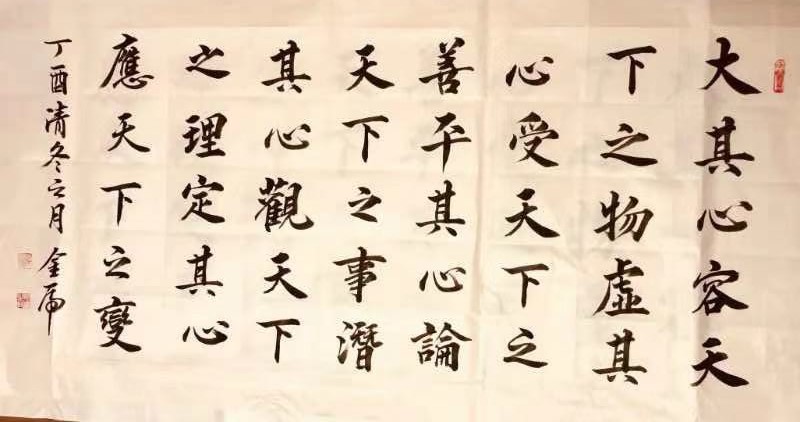 大其心容天
下之物虛其
心受天下之
善平其心論
天下之事潛
其心觀天下
之理定其心
應天下之變
丁酉清冬之月 金虎